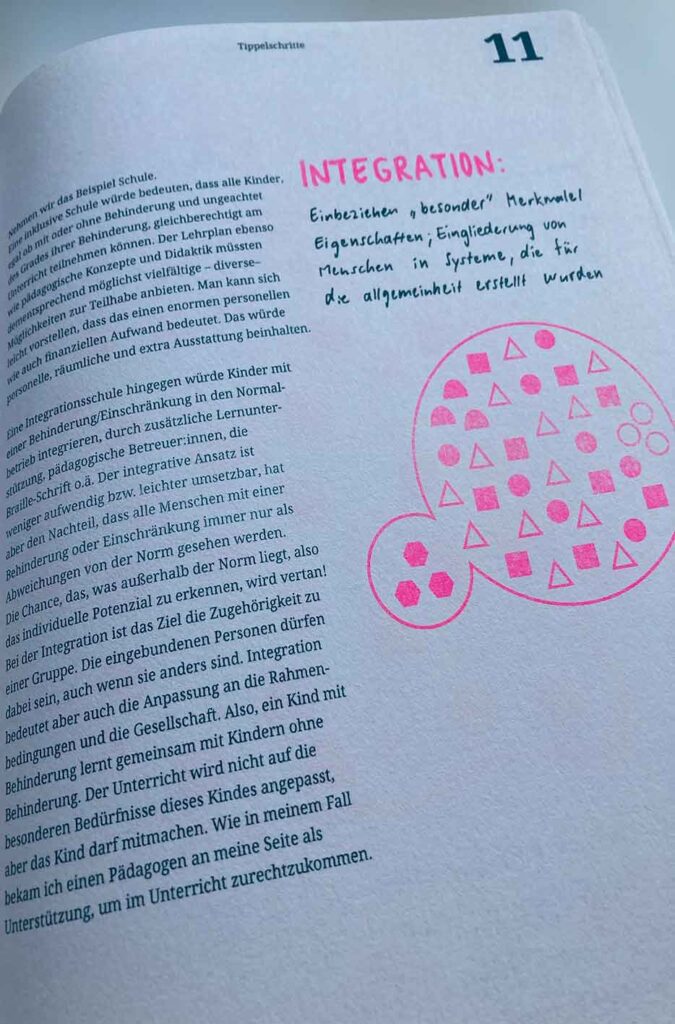 Tippelschritte
11
Nehmen wir das Beispiel Schule.
Eine inklusive Schule würde bedeuten, dass alle Kinder,
egal ob mit oder ohne Behinderung und ungeachtet
des Grades ihrer Behinderung, gleichberechtigt am
Unterricht teilnehmen können. Der Lehrplan ebenso
wie pädagogische Konzepte und Didaktik müssten
dementsprechend möglichst vielfältige – diverse–
Möglichkeiten zur Teilhabe anbieten. Man kann sich
leicht vorstellen, dass das einen enormen personellen
wie auch finanziellen Aufwand bedeutet. Das würde
personelle, räumliche und extra Ausstattung beinhalten.
Eine Integrationsschule hingegen würde Kinder mit
einer Behinderung/Einschränkung in den Normal-
betrieb integrieren, durch zusätzliche Lernunter-
stützung, pädagogische Betreuer:innen, die
Braille-Schrift o.ä. Der integrative Ansatz ist
weniger aufwendig bzw. leichter umsetzbar, hat
aber den Nachteil, dass alle Menschen mit einer
Behinderung oder Einschränkung immer nur als
Abweichungen von der Norm gesehen werden.
Die Chance, das, was außerhalb der Norm liegt, also
das individuelle Potenzial zu erkennen, wird vertan!
Bei der Integration ist das Ziel die Zugehörigkeit zu
einer Gruppe. Die eingebundenen Personen dürfen
dabei sein, auch wenn sie anders sind. Integration
bedeutet aber auch die Anpassung an die Rahmen-
bedingungen und die Gesellschaft. Also, ein Kind mit
Behinderung lernt gemeinsam mit Kindern ohne
Behinderung. Der Unterricht wird nicht auf die
besonderen Bedürfnisse dieses Kindes angepasst,
aber das Kind darf mitmachen. Wie in meinem Fall
bekam ich einen Pädagogen an meine Seite als
Unterstützung, um im Unterricht zurechtzukommen.
INTEGRATION:
Einbeziehen „besonder" Merkmale/
Eigenschaften; Eingliederung von
Menschen in Systeme, die für
die allgemeinheit erstellt wurden